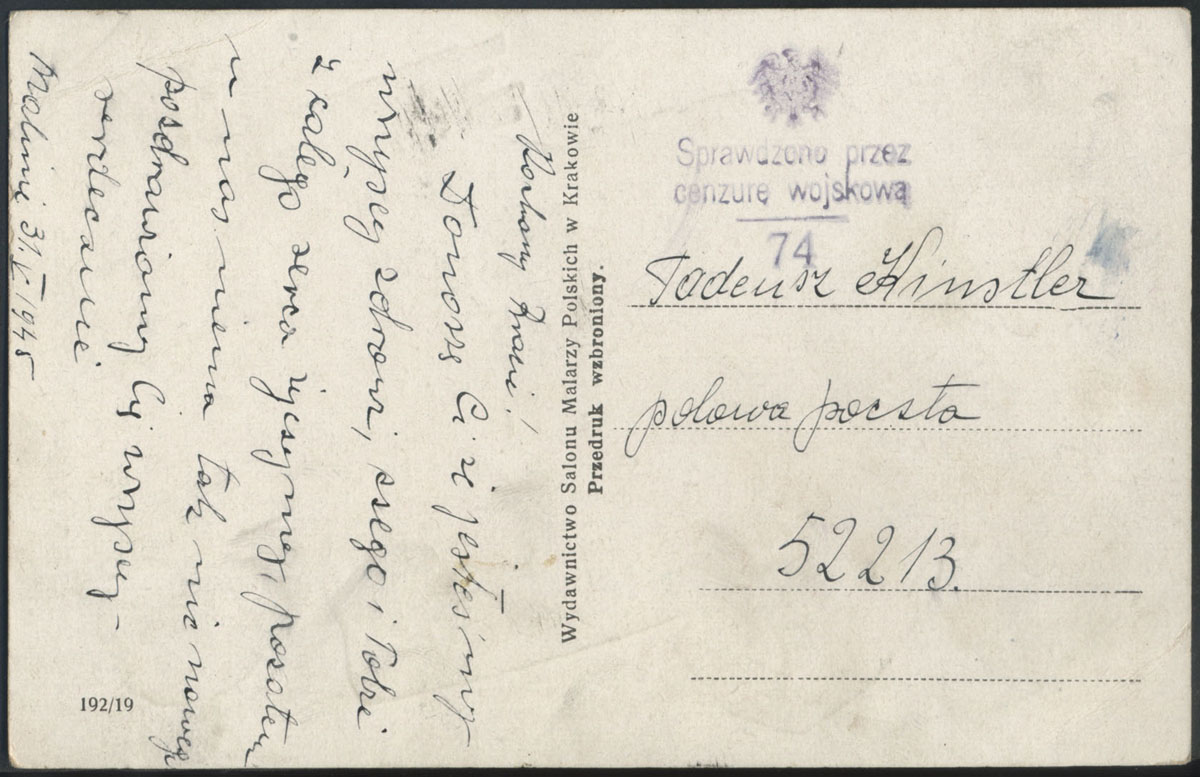 Kochany Bracie!
Donoszę Ci że jesteśmy
wszyscy zdrowi, czego i Tobie
z całego serca życzymy, pozatem
u nas niema tak nic nowego
pozdrawiamy Cię wszyscy –
serdecznie
31.V.1945
192/19
Wydawnictwo Salonu Malarzy Polskich w Krakowie
Przedruk wzbroniony.
Sprawdzono przez
cenzurę wojskową
74
Tadeusz Kinstler
polowa poczta
52213.